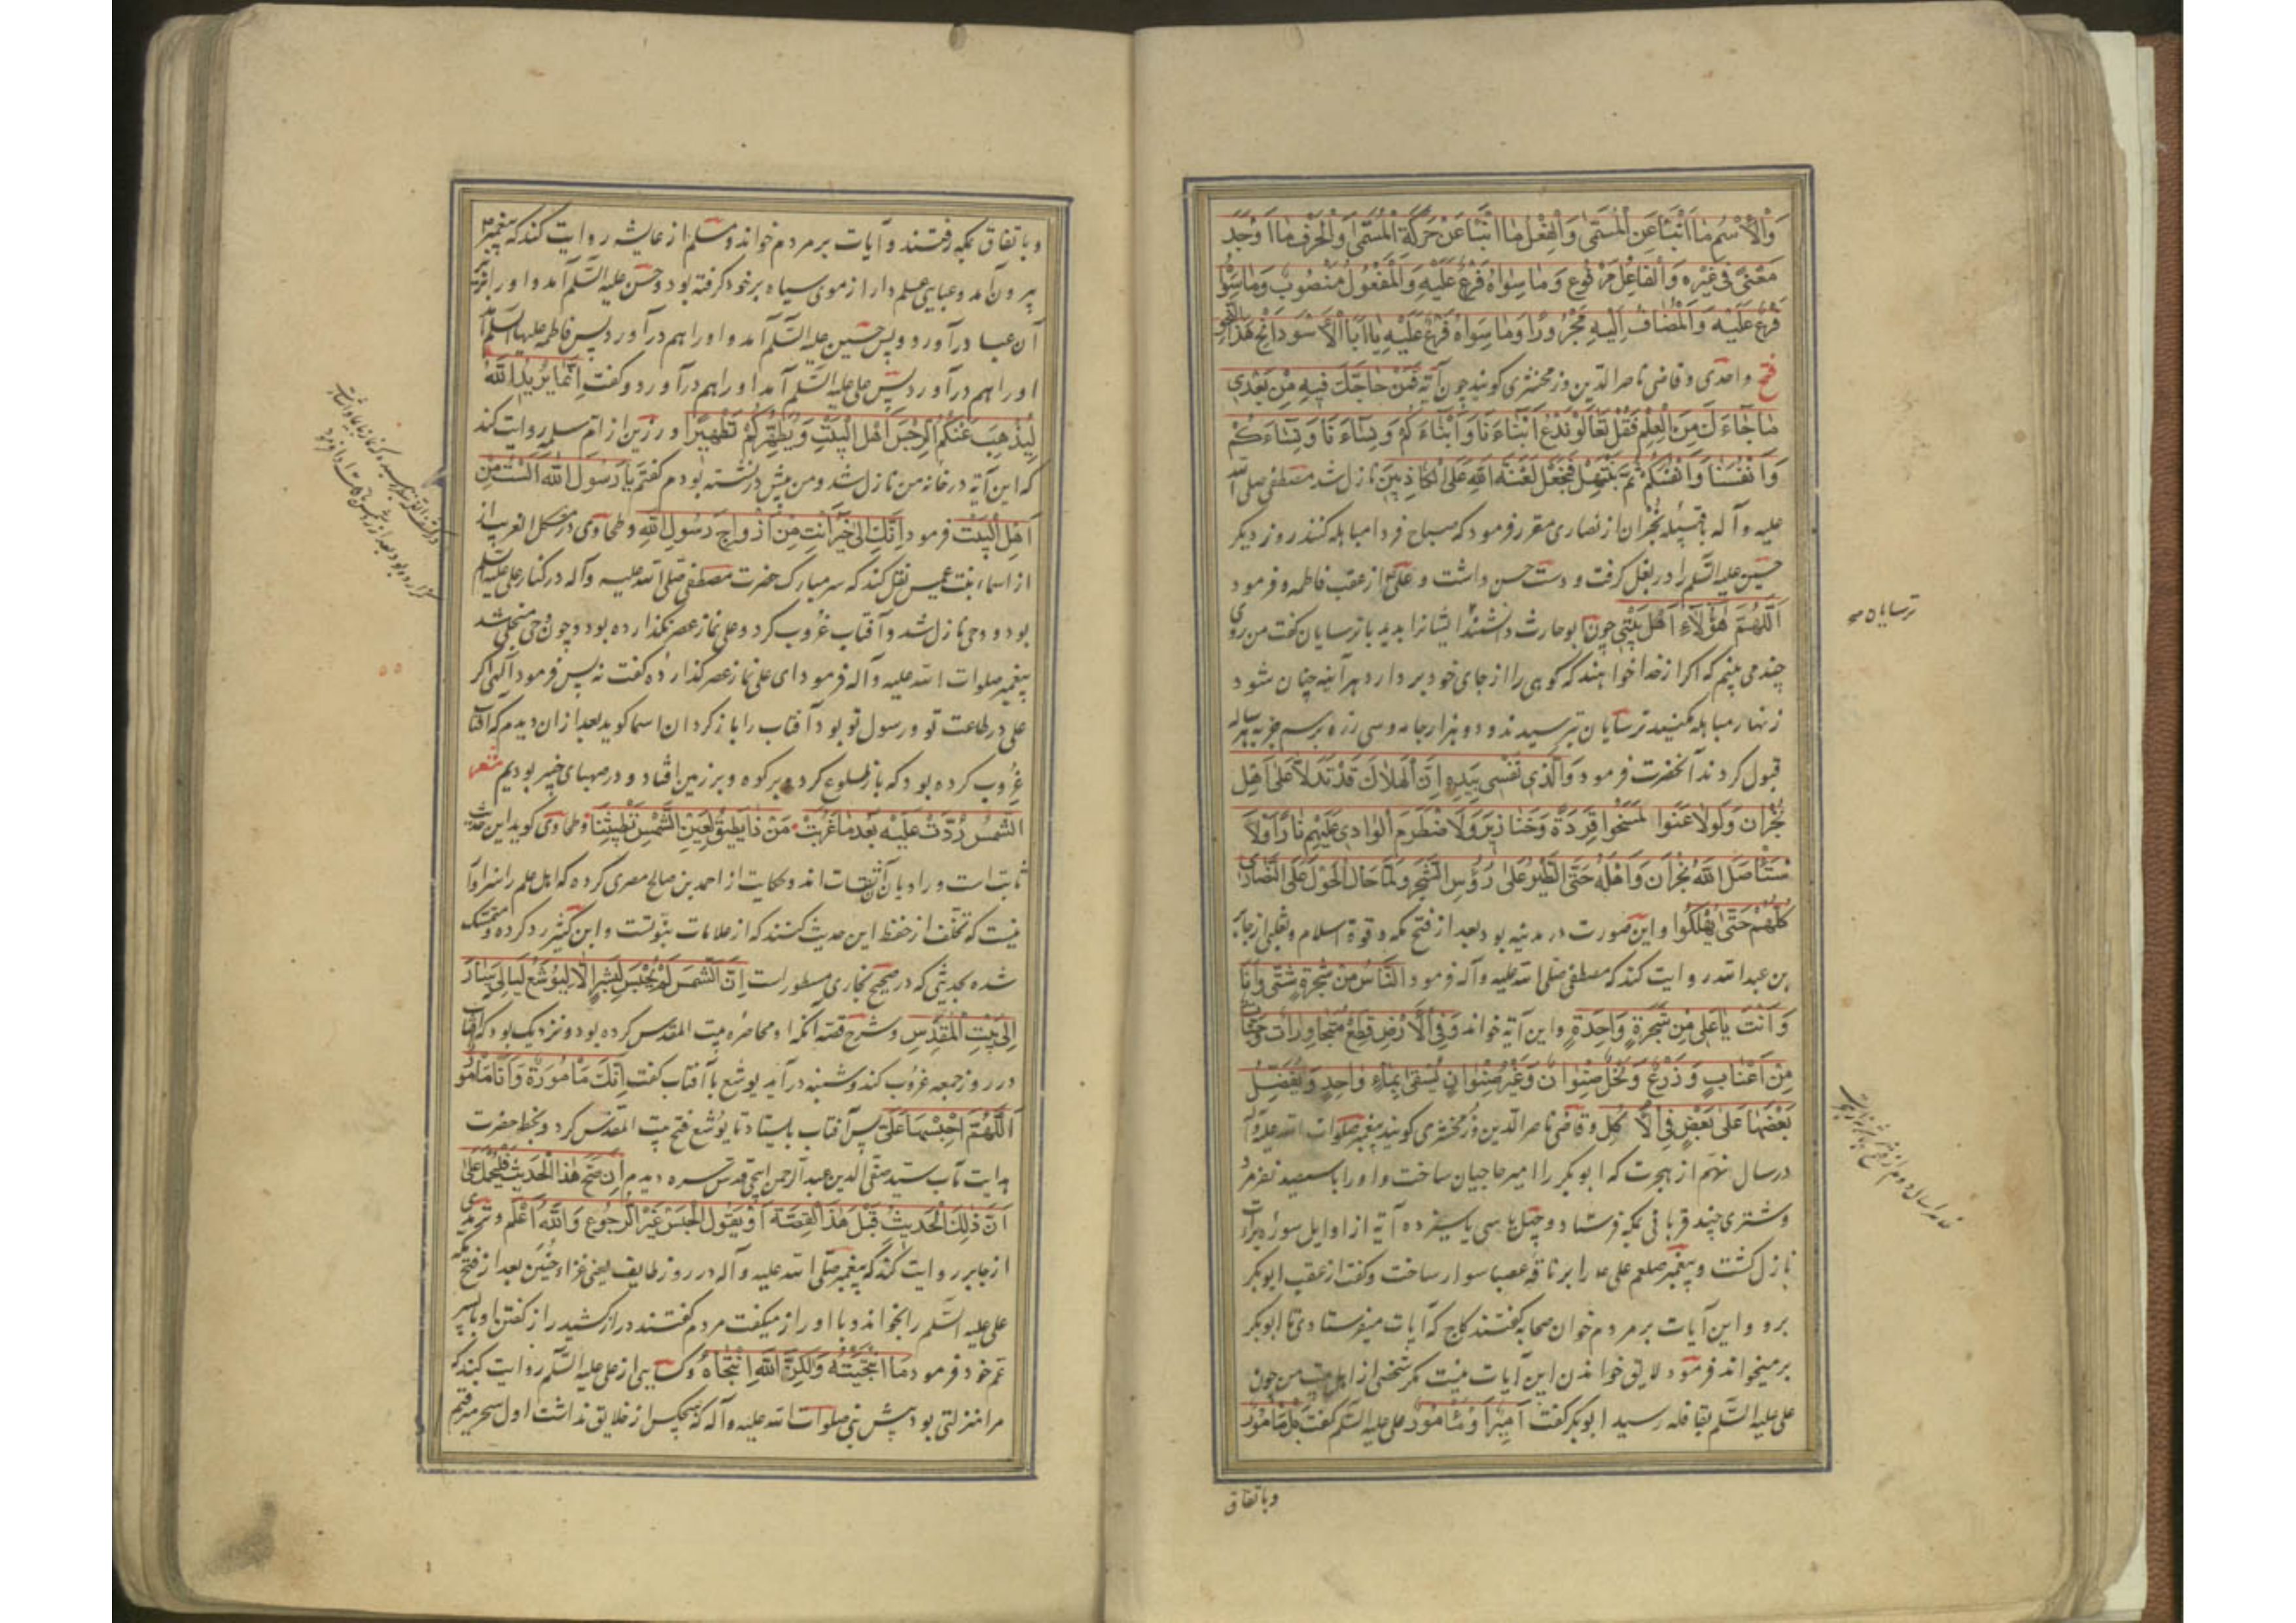 وَالْأَسْمُ مَا أَنْبَأَ عَنِ الْمُسَمّٰی وَالْفِعْلُ مَا انْبَأَ عَنْ حَرَکَةِ الْمُسَمّٰی وَالْحَرْفُ مَا اَوْجَدَ
مَعْنًی فی غَیْرِه وَالْفَاعِلُ مَرْفُوع وَمَا سِوَاهُ فَرْعٌ عَلَیْهِ وَالْمَفْعُولُ مَنْصُوبٌ وَمَا سِوَاهُ
فَرْعٌ عَلَیْهِ وَالْمُضَافُ اِلَیْهِ مَجْرُورًا وَمَا سِوَاهُ فَرْعٌ عَلَیْهِ یَا اَبَا الْاَسْوَد اُنْحُ هٰذَا النَّحْو
فتح واحدی و قاضی ناصر الدین و زمخشری کویند چون آیة فَمَنْ حَاجَّكَ فِیهِ مِنْ بَعْدِ
مَا جَاءَكَ مِنَ الْعِلْمِ فَقُلْ تَعَالَوْا نَدْعُ اَبْنَاءَنَا وَاَبْنَاءَكُمْ وَنِسَاءَنَا وَنِسَاءَكُمْ
وَاَنْفُسَنَا وَاَنْفُسَكُمْ ثُمَّ نَبْتَهِلْ فَنَجْعَلْ لَعْنَةَ اللهِ عَلَی الْكَاذِبِینَ نازل شد مصطفی صلی الله
علیه و آله با قبیله نجران از نصاری مقرر فرمود که صباح فردا مباهله کنند روز دیکر
حسین علیه السلم را در بغل کرفت و دست حسن داشت و علی از عقب فاطمه و فرمود
اَللّٰهُمَّ هٰؤُلَاءِ اَهْلُ بَیْتِی چون ابو حارث دانشمند ایشان را بدید با ترسایان کفت من روی
چند می بینم که اکر از خدا خواهند که کوهی را از جای خود بردارد هر آینه چنان شود
زنهار مباهله مکنید ترسایان بترسیدند و دو هزار جامه و سی زره برسم جزیه هر ساله
قبول کردند آنحضرت فرمود وَالَّذِی نَفْسِی بِیَدِهِ اِنَّ الْهَلَاكَ قَدْ تَدَلّٰا عَلٰی اَهْلِ
نَجْرَان وَلَوْ لَاعَنُوا لَمُسِخُوا قِرَدَةً وَخَنَازِیرَ وَلَاضْطَرَمَ الْوَادِی عَلَیْهِمْ نَارًا وَلَا
سْتَأْصَلَ اللهُ نَجْرَانَ وَاَهْلَهُ حَتَّی الطَّیْرُ عَلٰی رُؤُسِ الشَّجَرِ وَلَمَّا حَالَ الْحَوْلُ عَلَی النَّصَارٰی
كُلِّهِمْ حَتّٰی یُهْلَكُوا و این صورت در مدینه بود بعد از فتح مکه و قوة اسلام و ثعلبی از جابر
بن عبد الله روایت کند که مصطفی صلی الله علیه و آله فرمود النَّاسُ مِنْ شَجَرَةٍ شَتّٰی وَاَنَا
وَاَنْتَ یَا عَلِی مِنْ شَجَرَةٍ وَاحِدَةٍ و این آیة خواند وَفِی الْاَرْضِ قِطَعٌ مُتَجَاوِرَاتٌ وَجَنَّاتٌ
مِنْ اَعْنَابٍ وَزَرْعٌ وَنَخِیلٌ صِنْوَانٌ وَغَیْرُ صِنْوَانٍ یُسْقٰی بِمَاءٍ وَاحِدٍ وَنُفَضِّلُ
بَعْضَهَا عَلٰی بَعْضٍ فِی الْاُكُل و قاضی ناصر الدین و زمخشری کویند پیغمبر صلوات الله علیه و آله
در سال نهم از هجرت که ابوبکر را امیر حاجیان ساخت و او را با سیصد نفر مرد
و شتری چند قربانی بمکه فرستاد و چهل یا سی یا سیزده آیة از اوایل سوره برات
نازل کشت و پیغمبر صلعم علی را بر ناقه عضبا سوار ساخت و کفت از عقب ابوبکر
برو و این آیات بر مردم خوان صحابه کفتند کاج که آیات میفرستادی تا ابوبکر
بر میخواند فرمود لایق خواندن این آیات نیست مکر شخصی از اهل بیت من چون
علی علیه السلم بقافله رسید ابوبکر کفت اَمِیرًا وَمَأْمُورٌ علی علیه السلم کفت بَلْ مَأْمُورٌ
وباتفاق
ترسایان
و باتفاق بمکه رفتند و آیات بر مردم خواند و مسلم از عایشه روایت کند که پیغمبر
بیرون آمد و عبایی علم دار از موی سیاه بر خود کرفته بود و حسن علیه السلم آمد و او را در
آن عبا در آورد و پس حسین علیه السلم آمد و او را هم در آورد پس فاطمه علیها السلم آمد
او را هم در آورد پس علی علیه السلم آمد او را هم در آورد و کفت اِنَّمَا یُرِیدُ اللهُ
لِیُذْهِبَ عَنْكُمُ الرِّجْسَ اَهْلَ الْبَیْتِ وَیُطَهِّرَكُمْ تَطْهِیرًا و رزین از ام سلمه روایت کند
که این آیة در خانه من نازل شد و من پیش در نشسته بودم کفتم یَا رَسُولَ الله اَلَسْتُ مِنْ
اَهْلِ الْبَیْت فرمود اِنَّكِ اِلٰی خَیْرٍ اَنْتِ مِنْ اَزْوَاجِ رَسُولِ اللهِ و طحاوی در مشکل الغریب از
از اسماء بنت عمیس نقل کند که سر مبارک حضرت مصطفی صلی الله علیه و آله در کنار علی علیه السلم
بود و وحی نازل شد و آفتاب غروب کرد و علی نماز عصر نکذارده بود و چون وحی منجلی شد
پیغمبر صلوات الله علیه و آله فرمود ای علی نماز عصر کذارده کفت نه پس فرمود آلهی اکر
علی در طاعت تو و رسول تو بود آفتاب را باز کردان اسما کوید بعد از ان دیدم که آفتاب
غروب کرده بود که باز طلوع کرد و بر کوه و بر زمین افتاد و در صهبای خیبر بودیم شعر
الشَّمْسُ رُدَّتْ عَلَیْهِ بَعْدَمَا غَرَبَتْ مَنْ ذَا یُطِیقُ لِعَیْنِ الشَّمْسِ تَطْیِینَا و طحاوی کوید این حدیث
ثابت است و راویان آن ثقات اند و حکایت از احمد بن صالح مصری کرده که اهل علم را سزاوار
نیست که تخلف از حفظ این حدیث کنند که از علامات نبوتست و ابن کثیر رد کرده و متمسک
شده بحدیثی که در صحیح بخاری مسطور است اِنَّ الشَّمْسَ لَمْ تُحْبَسْ لِبَشَرٍ اِلَّا لِیُوشَعَ لَیَالِیَ سَارَ
اِلٰی بَیْتِ الْمُقَدَّسِ و شرح قصه آنکه او محاصره بیت المقدس کرده بود و نزدیک بود که آفتاب
در روز جمعه غروب کند و شنبه در آید یوشع با آفتاب کفت اِنَّكِ مَأْمُورَةٌ وَاَنَا مَأْمُورٌ
اَللّٰهُمَّ احْبِسْهَا عَلَیَّ پس آفتاب بایستاد تا یوشع فتح بیت المقدس کرد و بخط حضرت
هدایت مآب سید صفی الدین عبد الرحمن ایجی قدس سره دیدم اِنْ صَحَّ هٰذَا الْحَدِیثُ فَلْیُحْمَلْ عَلٰی
اَنَّ ذٰلِكَ الْحَدِیثُ قَبْلَ هٰذِهِ الْقِصَّةِ اَوْ یَقُولُ الْحَبْسُ غَیْرُ الرُّجُوعِ وَاللهُ اَعْلَم و ترمذی
از جابر روایت کند که پیغمبر صلی الله علیه و آله در روز طایف یعنی غزاء حنین بعد از فتح مکه
علی علیه السلم را بخواند و با او راز میکفت مردم کفتند دراز کشید راز کفتن او با پسر
عم خود فرمود مَا انْتَجَیْتُهُ وَلٰكِنَّ اللهَ انْتَجَاهُ و نسایی از علی علیه السلم روایت کند که
مرا منزلتی بود پیش نبی صلوات الله علیه و آله که هیچکس از خلایق نداشت اول سحر میرفتم